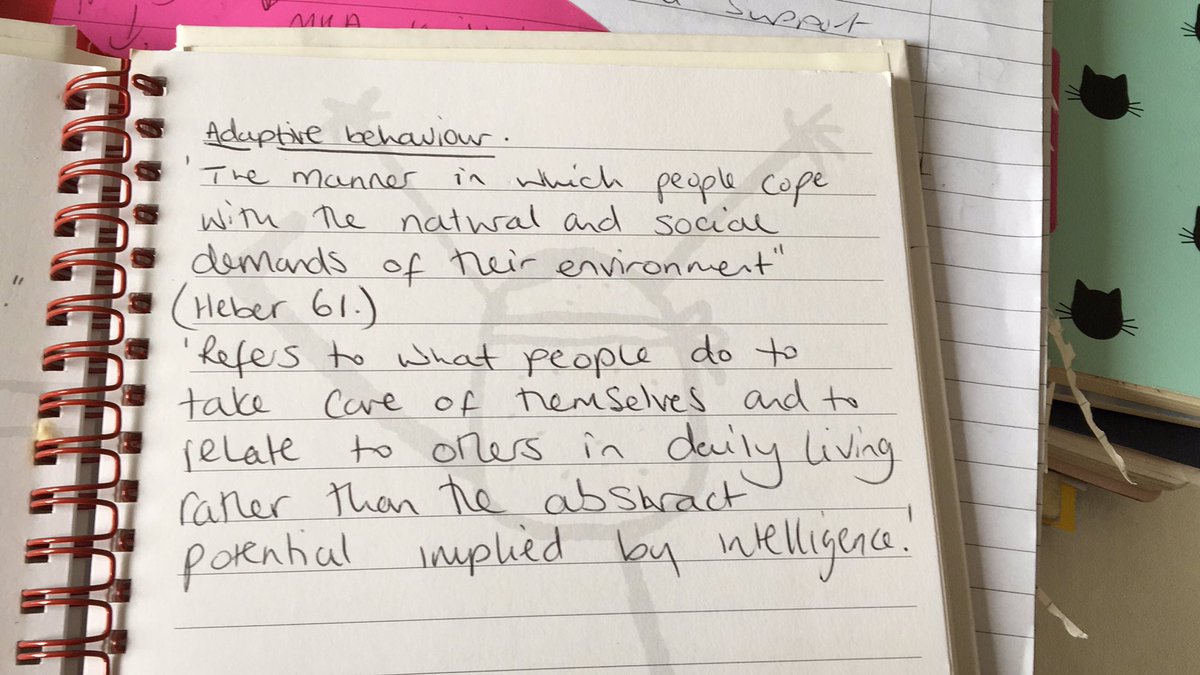 Support
Adaptive behaviour.
'The manner in which people cope
with the natural and social
demands of their environment"
(Heber 61.)
'Refers to what people do to
take care of themselves and to
relate to others in daily living
rather than the abstract
potential implied by intelligence.'
"